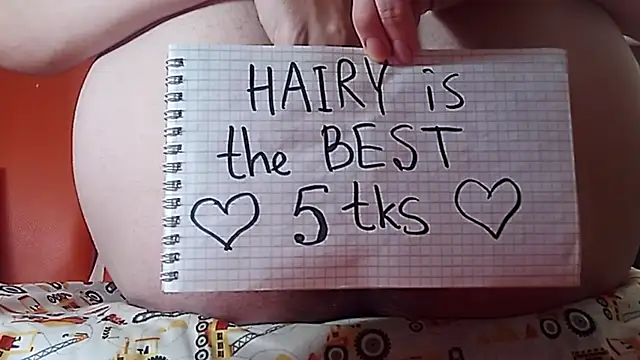 HAIRY is
the BEST
♡ 5 tks ♡